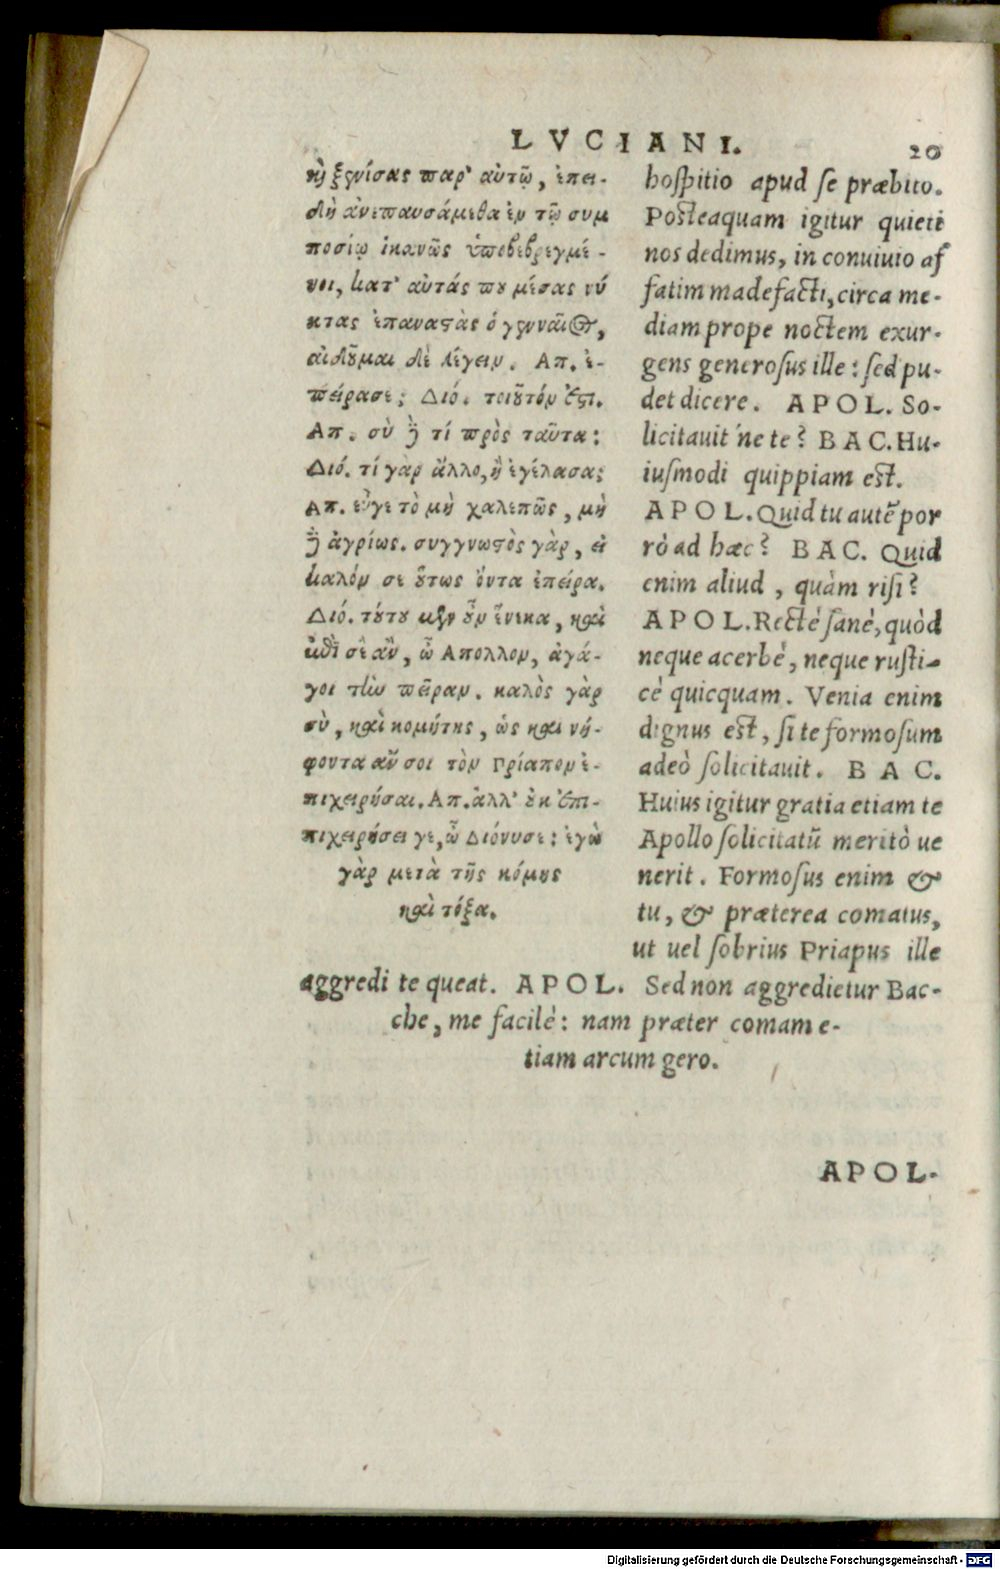 LVCIANI. 20
κὴ ξενίσας παρ' αὐτῷ, ἐπει-
δὴ ἀνεπαυσάμεθα ἐν τῷ συμ
ποσίῳ ἱκανῶς ὑποβεβρεγμέ-
νοι, κατ' αὐτάς που μέσας νύ
κτας ἐπαναστὰς ὁ γενναῖος,
αἰδοῦμαι δὲ λέγειν. Απ. ἐ-
πείρασε; Διό. τοιοῦτόν ἐστι.
Απ. σὺ δὲ τί πρὸς ταῦτα;
Διό. τί γὰρ ἄλλο, ἢ ἐγέλασα;
Απ. εὖγε τὸ μὴ χαλεπῶς, μὴ
δὲ ἀγρίως. συγγνωστὸς γὰρ, εἰ
καλόν σε οὕτως ὄντα ἐπείρα.
Διό. τούτου μὲν οὖν ἕνεκα, καὶ
ἐπὶ σὲ ἂν, ὦ Απολλον, ἀγά-
γοι τὴν πεῖραν. καλὸς γὰρ
σὺ, καὶ κομήτης, ὡς καὶ νή-
φοντα ἄν σοι τὸν Πρίαπον ἐ-
πιχειρῆσαι. Απ. ἀλλ' οὐκ ἐπι-
πιχειρήσει γε, ὦ Διόνυσε: ἐγὼ
γὰρ μετὰ τῆς κόμης
καὶ τόξα.
hoſpitio apud ſe præbito.
Poſteaquam igitur quieti
nos dedimus, in conuiuio af
fatim madefacti, circa me-
diam prope noctem exur-
gens generoſus ille: ſed pu-
det dicere. APOL. So-
licitauit'ne te? BAC. Hu-
iuſmodi quippiam eſt.
APOL. Quid tu autē por
rò ad hæc? BAC. Quid
enim aliud, quàm riſi?
APOL. Rectè ſanè, quòd
neque acerbè, neque ruſti-
cè quicquam. Venia enim
dignus eſt, ſi te formoſum
adeò ſolicitauit. BAC.
Huius igitur gratia etiam te
Apollo ſolicitatũ meritò ue
nerit. Formoſus enim &
tu, & præterea comatus,
ut uel ſobrius Priapus ille
aggredi te queat. APOL. Sed non aggredietur Bac-
che, me facilè: nam præter comam e-
tiam arcum gero.
APOL-
Digitalisierung gefördert durch die Deutsche Forschungsgemeinschaft - DFG